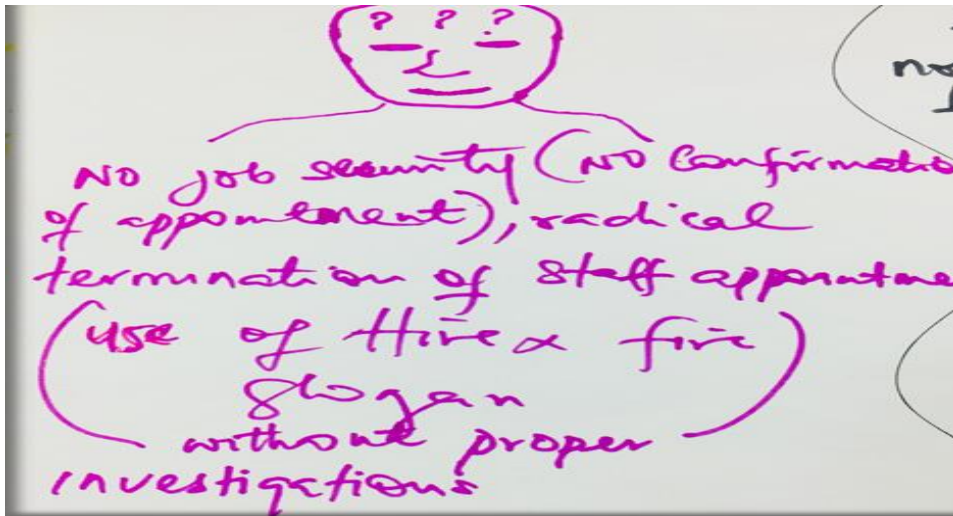 ? ? ?
NO job security (NO Confirmatio
of appointment), radical
termination of staff appointme
(use of Hire & fire
slogan
without proper)
investigations
no